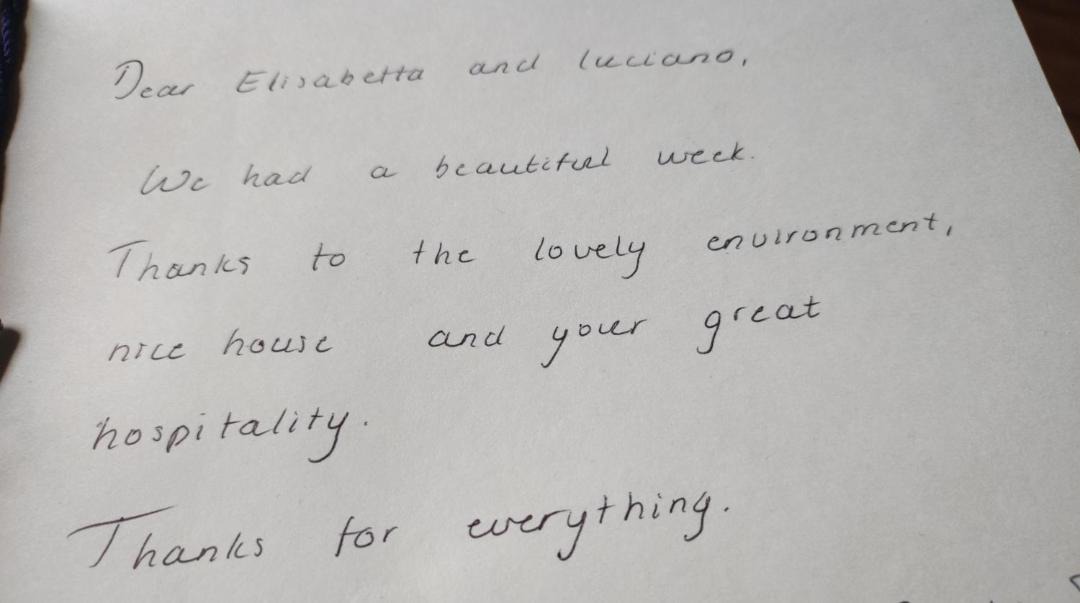 Dear Elisabetta and Luciano,
We had a beautiful week.
Thanks to the lovely environment,
nice house and your great
hospitality.
Thanks for everything.